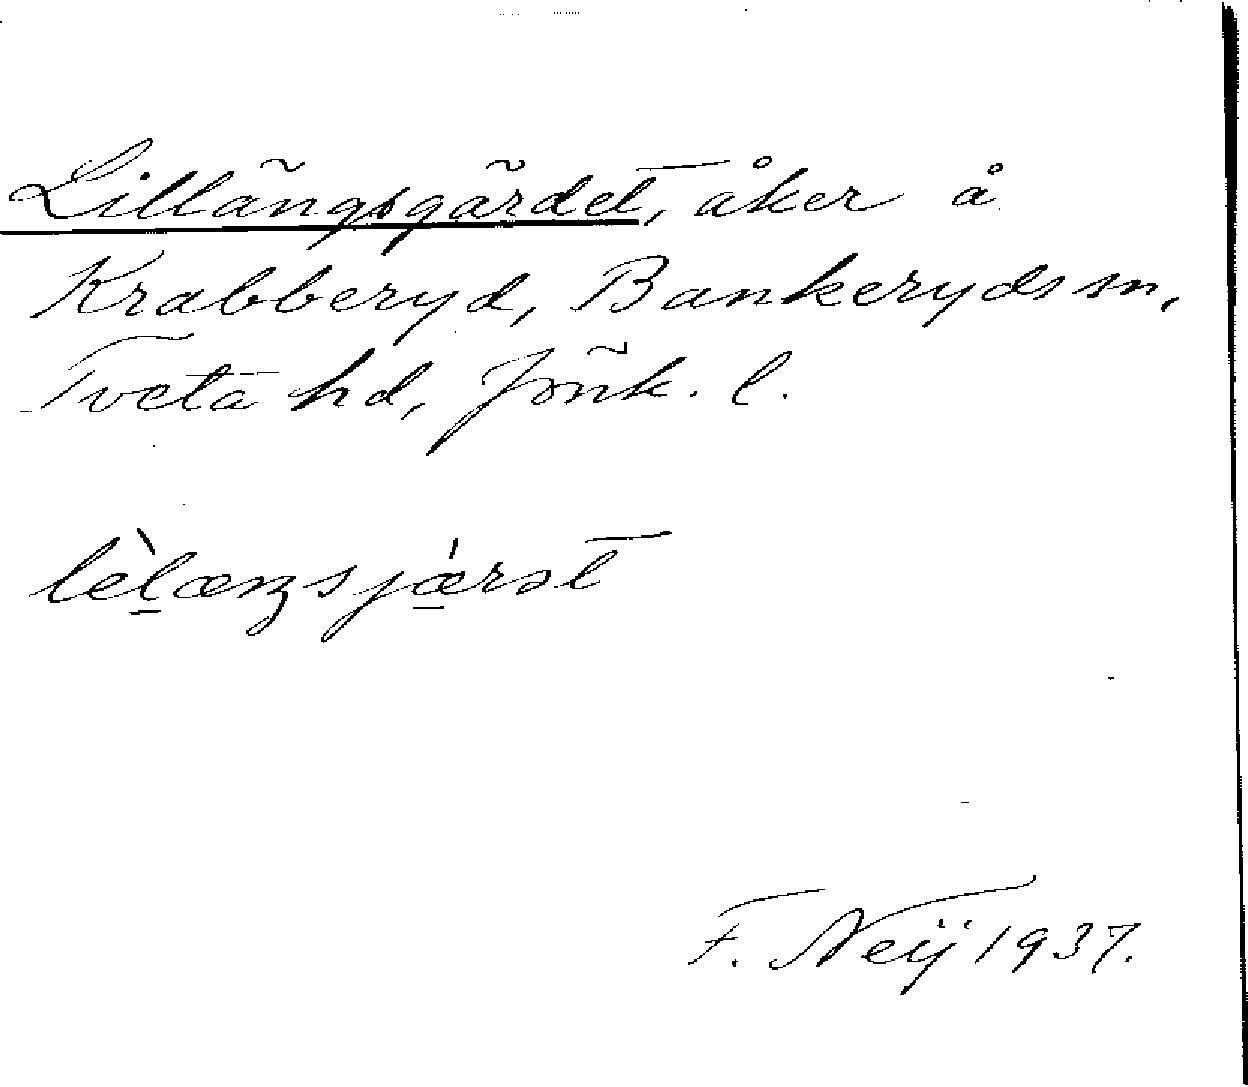 Lillängsgärdet, åker å
Krabberyd, Bankeryds sn,
Tveta hd, Jönk. l.
lèlæŋsjæ̀rət
F. Neij 1937.